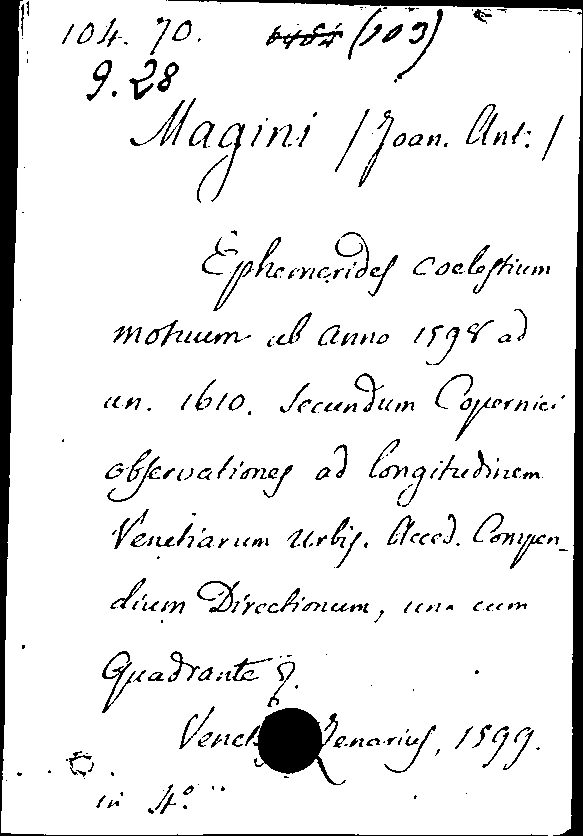 104. 70. (103)
9.28
Magini /Joan. Ant:/
Ephemerides coelestium
motuum ab anno 1598 ad
an. 1610. secundum Copernici
observationes ad longitudinem
Venetiarum Urbis. Acced. Compen-
dium Directionum, una cum
Quadrante
Zenarius, 1599.
in 4º